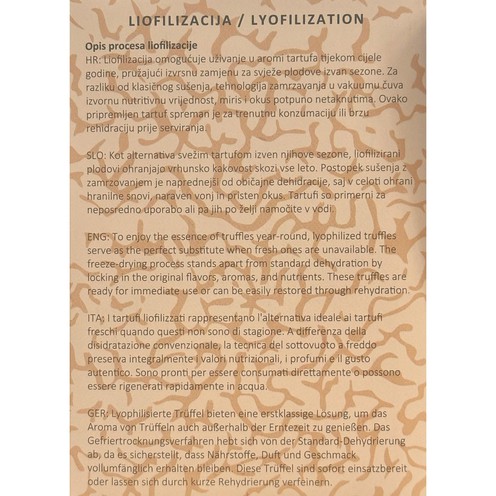 LIOFILIZACIJA / LYOFILIZATION
Opis procesa liofilizacije
HR: Liofilizacija omogućuje uživanje u aromi tartufa tijekom cijele
godine, pružajući izvrsnu zamjenu za svježe plodove izvan sezone. Za
razliku od klasičnog sušenja, tehnologija zamrzavanja u vakuumu čuva
izvornu nutritivnu vrijednost, miris i okus potpuno netaknutima. Ovako
pripremljen tartuf spreman je za trenutnu konzumaciju ili brzu
rehidraciju prije serviranja.
SLO: Kot alternativa svežim tartufom izven njihove sezone, liofilizirani
plodovi ohranjajo vrhunsko kakovost skozi vse leto. Postopek sušenja z
zamrzovanjem je naprednejši od običajne dehidracije, saj v celoti ohrani
hranilne snovi, naraven vonj in pristen okus. Tartufi so primerni za
neposredno uporabo ali pa jih po želji namočite v vodi.
ENG: To enjoy the essence of truffles year-round, lyophilized truffles
serve as the perfect substitute when fresh ones are unavailable. The
freeze-drying process stands apart from standard dehydration by
locking in the original flavors, aromas, and nutrients. These truffles are
ready for immediate use or can be easily restored through rehydration.
ITA: I tartufi liofilizzati rappresentano l'alternativa ideale ai tartufi
freschi quando questi non sono di stagione. A differenza della
disidratazione convenzionale, la tecnica del sottovuoto a freddo
preserva integralmente i valori nutrizionali, i profumi e il gusto
autentico. Sono pronti per essere consumati direttamente o possono
essere rigenerati rapidamente in acqua.
GER: Lyophilisierte Trüffel bieten eine erstklassige Lösung, um das
Aroma von Trüffeln auch außerhalb der Erntezeit zu genießen. Das
Gefriertrocknungsverfahren hebt sich von der Standard-Dehydrierung
ab, da es sicherstellt, dass Nährstoffe, Duft und Geschmack
vollumfänglich erhalten bleiben. Diese Trüffel sind sofort einsatzbereit
oder lassen sich durch kurze Rehydrierung verfeinern.